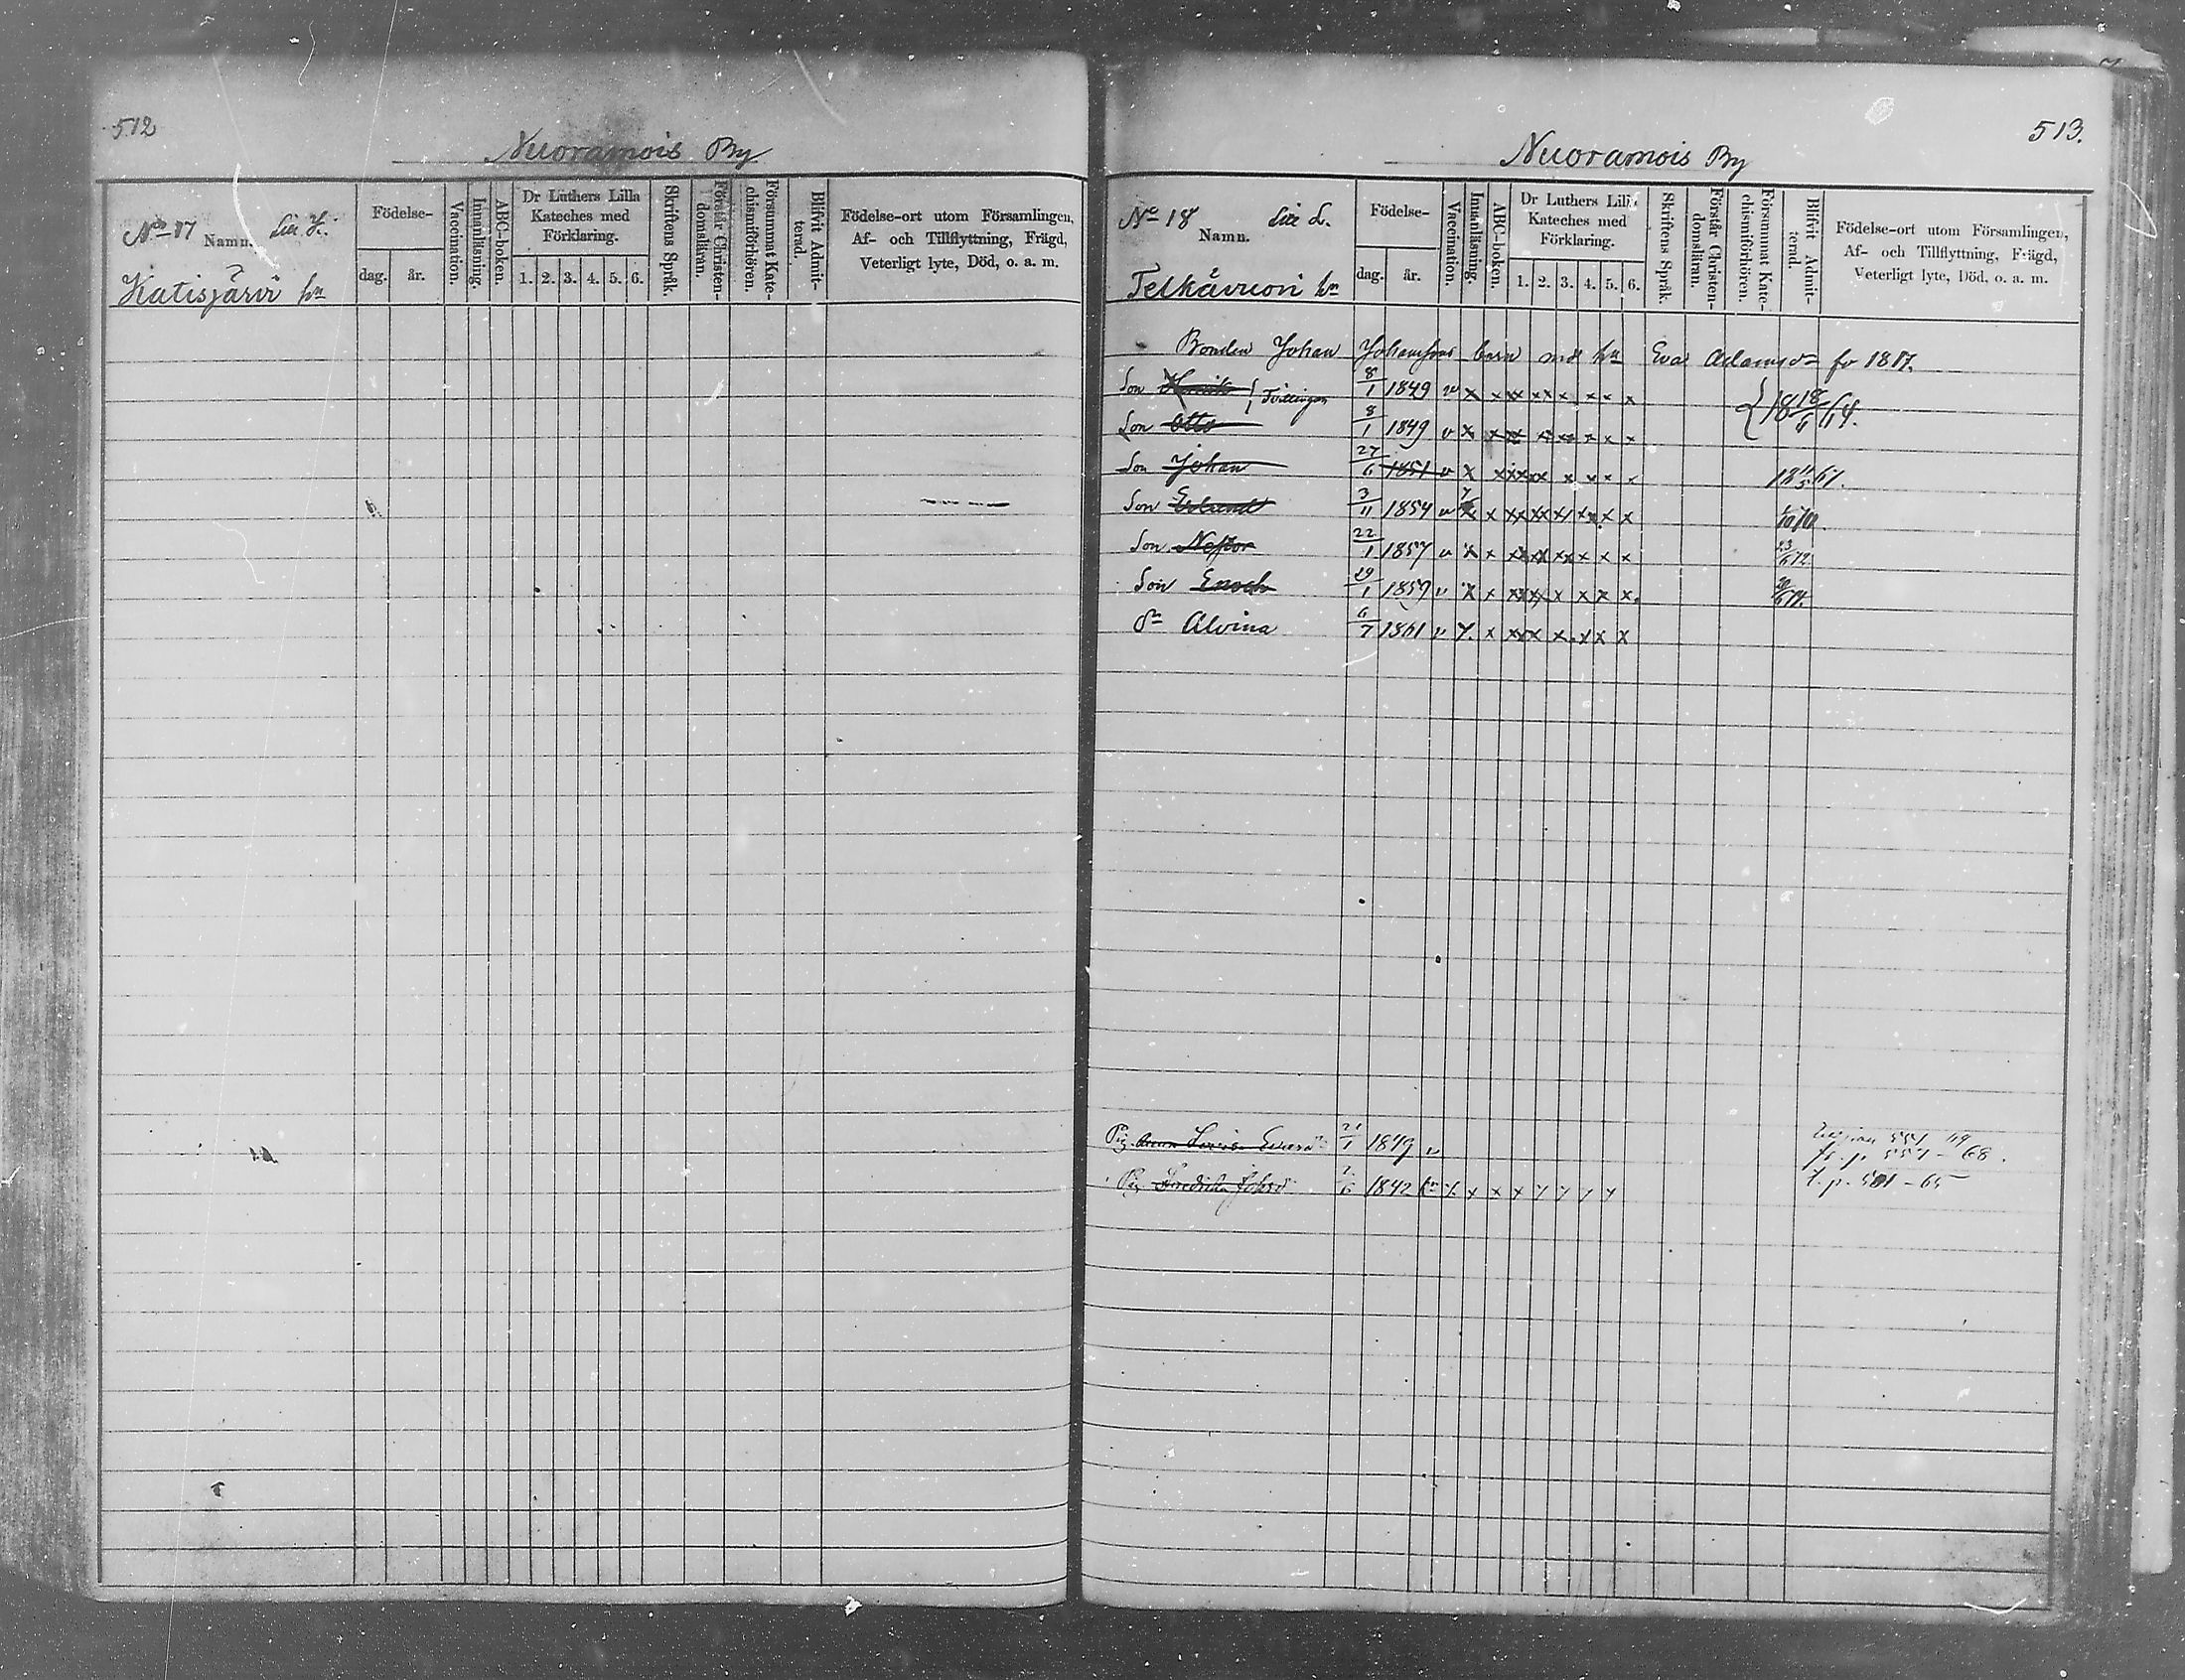 512
Nuoramois By
No 17 Namn. Litt K.
Katisjärvi hn
Födelse-
dag. år.
Vaccination.
Innanläsning.
ABC-boken.
Dr Luthers Lilla Kateches med Förklaring.
1. 2. 3. 4. 5. 6.
Skriftens Språk.
Förstår Christendomsläran.
Försummat Katechismiförhören.
Blifvit Admitterad.
Födelse-ort utom Församlingen,
Af- och Tillflyttning, Frägd,
Veterligt lyte, Död, o. a. m.
513.
Nuoramois By
No 18 Namn. Litt L.
Telkävuori hn
Födelse-
dag. år.
Vaccination.
Innanläsning.
ABC-boken.
Dr Luthers Lilla Kateches med Förklaring.
1. 2. 3. 4. 5. 6.
Skriftens Språk.
Förstår Christendomsläran.
Försummat Katechismiförhören.
Blifvit Admitterad.
Födelse-ort utom Församlingen,
Af- och Tillflyttning, Frägd,
Veterligt lyte, Död, o. a. m.
Bonden Johan Johanssons barn med hu Eva Adamsdr
Son Henrik } Tvillingar 8/1 1849 v x x x x x x x x x
Son Otto 8/1 1849 v x x x x x x x x 18 18/6 64.
Son Johan 27/6 1851 v x x x x x x x x
Son 3/11 1854 v x x x x x x x x
Son Nestor 22/1 1857 v x x x x x x x x
Son Enoch 29/1 1859 v x x x x x x x x
dr Alvina 6/7 1861 v x x x x x x x x
Pig. Anna Lovisa 21/1 1849 v
fl. p. 557 - 68.
Pig. Fredrika Johsdr 1842 x x x x x x x x
t. p. 501 - 65